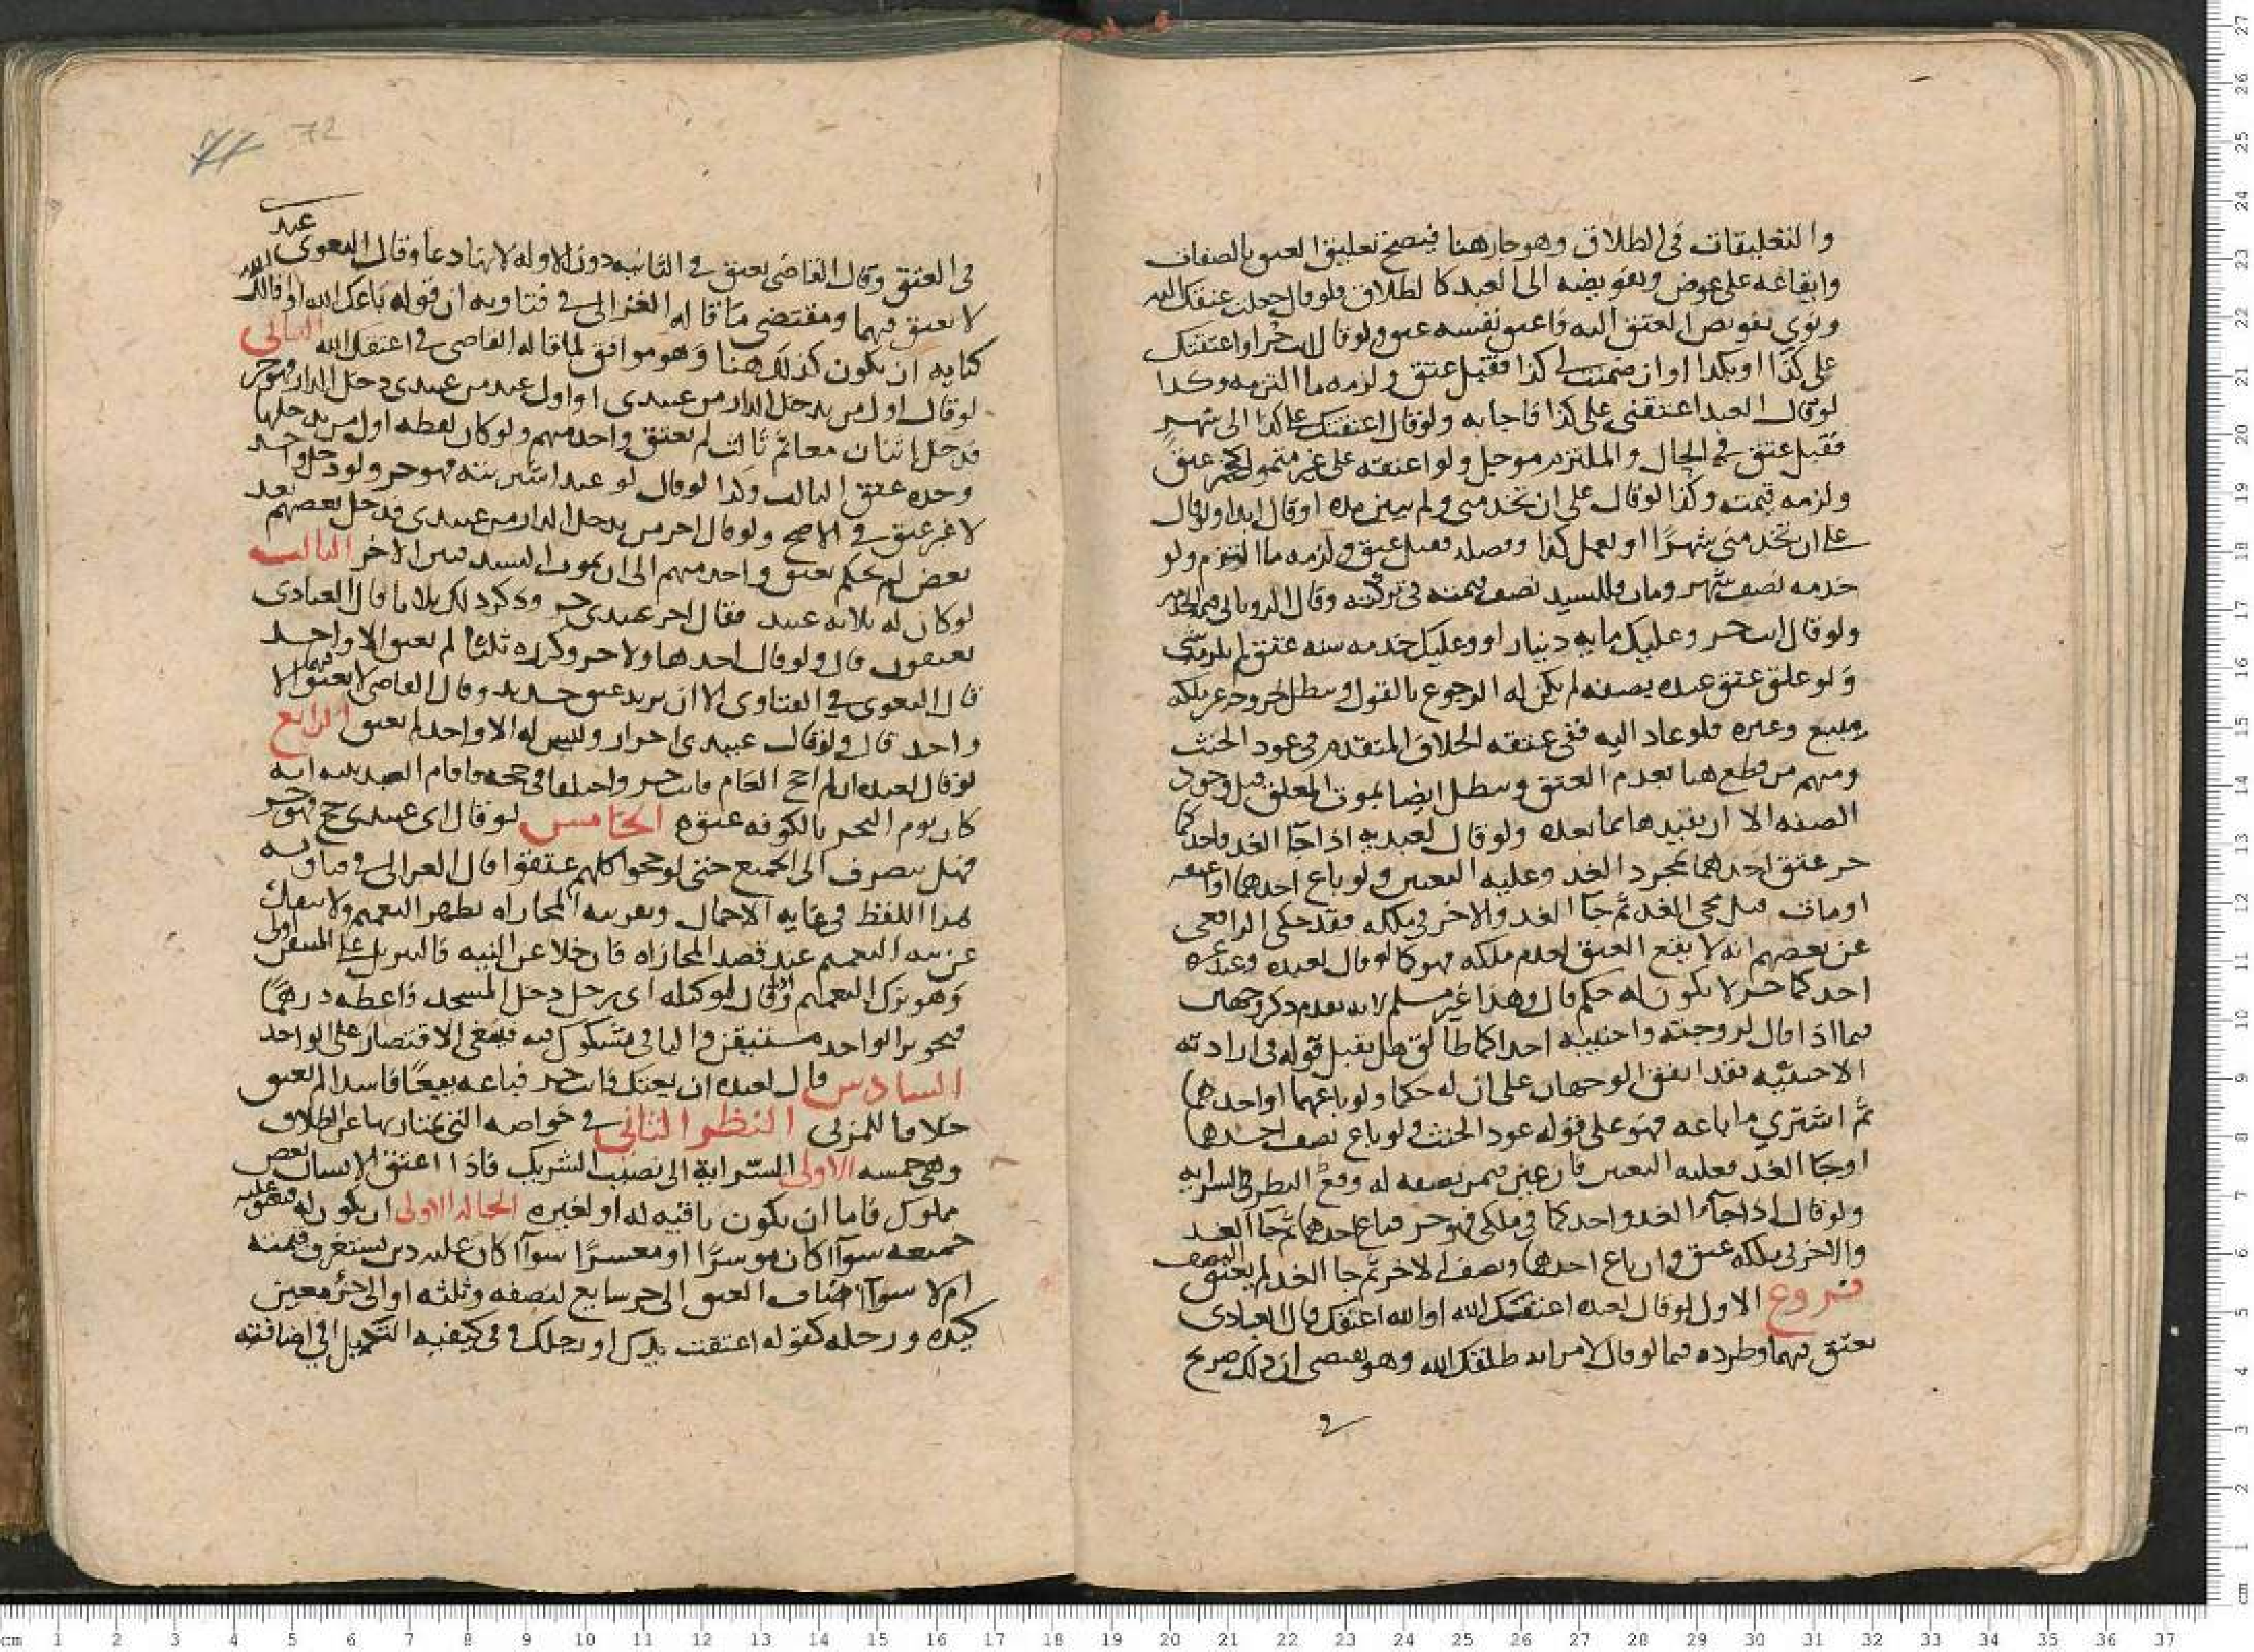 والتعليقات في الطلاق وهو جار هنا فيصح تعليق العتق بالصفات
وايقاعه على عوض وتفويضه الى العبد كالطلاق فلو قال جعلت عتقك اليك
ونوى تفويض العتق اليه فاعتق نفسه عتق ولو قال انت حر او اعتقتك
على كذا او بكذا او ان ضمنت لي كذا فقبل عتق ولزمه ما التزمه وكذا
لو قال العبد اعتقني على كذا فاجابه ولو قال اعتقتك على كذا الى شهر
فقبل عتق في الحال والملتزم موجل ولو اعتقه على غير متمول كخمر عتق
ولزمه قيمته وكذا لو قال على ان تخدمني ولم يبين مده او قال ابدا ولو قال
على ان تخدمني شهرًا او تعمل كذا وفصله فقبل عتق ولزمه ما التزم ولو
خدمه نصف شهر ومات فللسيد نصف قيمته في تركته وقال الروياني
ولو قال انت حر وعليك مايه دينار او وعليك خدمه سنه عتق ولم يلزم شي
ولو علق عتق عبده بصفه لم يكن له الرجوع بالقول وتبطل بخروجه عن ملكه
ببيع وغيره فلو عاد اليه ففي عتقه الخلاف المتقدم في عود الحنث
ومنهم من قطع هنا بعدم العتق وتبطل ايضا بموت المعلق قبل وجود
الصفه الا ان يقيدها بما بعده ولو قال لعبديه اذا جا الغد فاحدكما
حر عتق احدهما بمجرد الغد وعليه التعيين ولو باع احدهما او اعتقه
او مات قبل مجي الغد ثم جا الغد والاخر في ملكه فقد حكى الرافعي
عن بعضهم انه لا يقع العتق لعدم ملكه فهو كما لو قال لعبده وعبد غيره
احدكما حر لا يكون له حكم قال وهذا غير مسلم لانه تقدم ذكر وجهين
فيما اذا قال لزوجته واجنبيه احداكما طالق هل يقبل قوله في ارادته
الاجنبيه فقد اتفق الوجهان على ان له حكما ولو باعهما او احدهما
ثم اشترى ما باعه فهو على قوله عود الحنث ولو باع نصف احدهما
او جا الغد فعليه التعيين فان عين فيمن نصفه له وقع النظر في السرايه
ولو قال اذا جا الغد واحدكما في ملكي فهو حر فباع احدهما ثم جا الغد
والاخر في ملكه عتق وان باع احدهما ونصف الاخر ثم جا الغد لم يعتق النصف
فروع الاول لو قال لعبده اعتقتك الله او الله اعتقك قال العبادي
يعتق فيهما وطرده فيما لو قال لامراته طلقك الله وهو يقتضي ان ذلك صريح
في
72
في العتق وقال القاضي يعتق في الثانيه دون الاوله لانها دعا وقال البغوي عبد
لا يعتق فيهما ومقتضى ما قاله الغزالي في فتاويه ان قوله باعك الله او اقالك الله
كنايه ان يكون كذلك هنا وهو موافق لما قاله القاضي في اعتقك الله الثاني
لو قال اول من يدخل الدار من عبيدي او اول عبد من عبيدي دخل الدار فهو حر
فدخل اثنان معا ثم ثالث لم يعتق واحد منهم ولو كان لفظه اول من يدخلها
وحده عتق الثالث وكذا لو قال لو عبد اشتريته فهو حر ولو دخل واحد
لا غير عتق في الاصح ولو قال اخر من يدخل الدار من عبيدي فدخل بعضهم بعد
بعض لم يحكم بعتق واحد منهم الى ان يموت السيد فيتبين الاخر الثالث
لو كان له ثلاثه عبيد فقال احر عبيدي حر وذكر ذلك ثلاثا قال العبادي
يعتقون قال ولو قال احد هاولا حر وكرره ثلثا لم يعتق الا واحد
قال البغوي في الفتاوى الا ان يريد عتق جديد وقال القاضي لا يعتق فيهما الا
واحد قال ولو قال عبيدي احرار وليس له الا واحد لم يعتق الرابع
لو قال لعبده ان لم احج العام فانت حر واختلفا في حجه واقام العبد بينه انه
كان يوم النحر بالكوفه عتق الخامس لو قال اي عبيدي حج فهو حر
فهل ينصرف الى الجميع حتى لو حجوا كلهم عتقوا قال الغزالي في فتاويه
هذا اللفظ في غايه الاحمال وبقرينه المجازاه تظهر التعميم ولا ينفك
عن نيه التعميم عند قصد المجازاه فان خلا عن النيه فالتنزيل على المتيقن اولى
وهو ترك التعميم ولو قال لوكيله اي رجل دخل المسجد فاعطه درهمًا
فتجويز الواحد مستيقن والباقي مشكوك فيه فينبغي الاقتصار على الواحد
السادس قال لعبده ان بعتك فانت حر فباعه بيعًا فاسدا لم يعتق
خلافا للمزني النظر الثاني في خواصه التي يمتاز بها عن الطلاق
وهي خمسه الاولى السرايه الى نصيب الشريك فاذا اعتق الانسان بعض
مملوك فاما ان يكون باقيه له او لغيره الحاله الاولى ان يكون له فيعتق عليه
جميعه سوآ كان موسرًا او معسرًا سوآ كان عليه دين يستغرق قيمته
ام لا سوآ اضاف العتق الى جز شايع كنصفه وثلثه او الى جزء معين
كيده ورجله كقوله اعتقت يدك او رجلك وفي كيفيه التكميل في اضافته